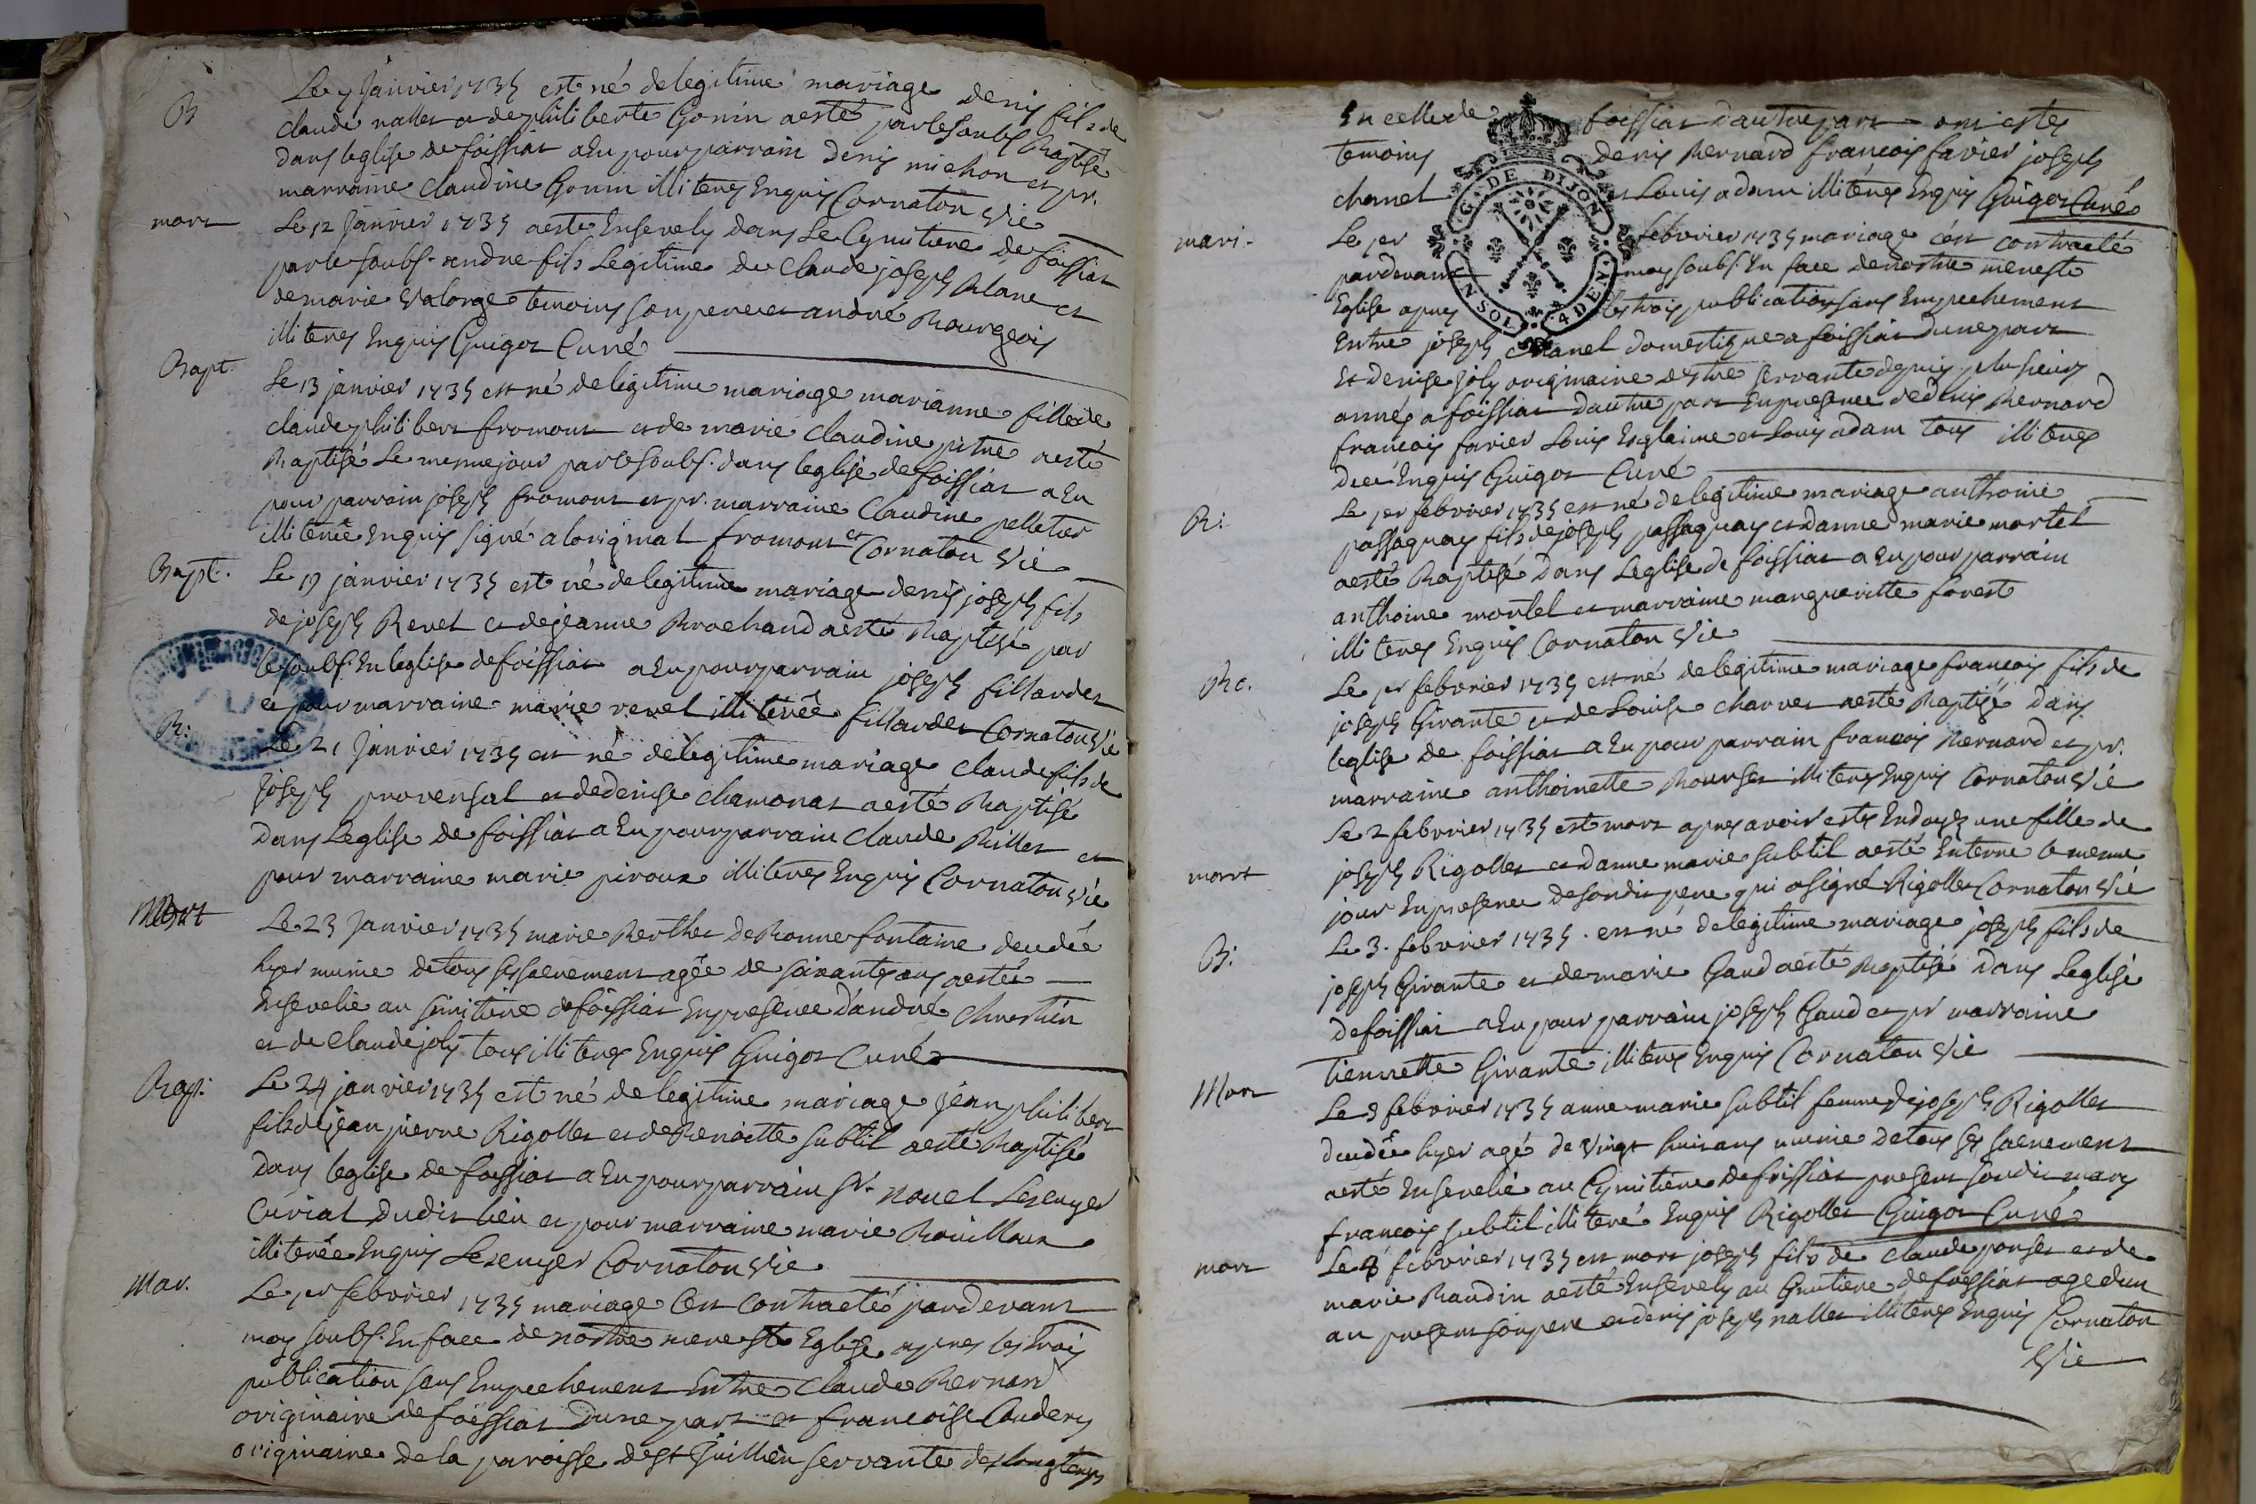 B
Le 7 Janvier 1735 est né de legitime mariage denis fils de
claude nallet et de philiberte Gonin a esté par le soubs. Baptisé
dans leglise de foissiat a Eu pour parrain denis michon et pr.
marraine Claudine Gonin illiteres Enquis Cornaton Vic
mort
Le 12 Janvier 1735 a esté Ensevely dans le Cymitiere de foissiat
par le soubs. andre fils Legitime de Claude joseph Blanc et
de marie Valorge temoins son pere et andre Bourgeois
illiteres Enquis Guigot Curé
Bapt.
Le 13 janvier 1735 est né de legitime mariage marianne fille de
claude philibert fromont et de marie Claudine pitre a esté
Baptisé Le meme jour par le soubs. dans leglise de foissiat a Eu
pour parrain joseph fromont et pr. marraine Claudine pelletier
illiterée Enquis signé a loriginal fromont et Cornaton Vic
Bapt.
Le 19 janvier 1735 est né de legitime mariage denis joseph fils
de joseph Revel et de jeanne Brochand a esté Baptisé par
le soubs. En leglise de foissiat a Eu pour parrain joseph fillardet
et pour marraine marie revel illiterée fillardet Cornaton Vic
B:
Le 21 Janvier 1735 est né de legitime mariage Claude fils de
Joseph provensal et de denise chamonat a esté Baptisé
Dans Leglise de foissiat a Eu pour parrain Claude Billet et
pour marraine marie piroux illiteres Enquis Cornaton Vic
Mort
Le 23 Janvier 1735 marie Berthet De Bonnefontaine decedée
hyer munie de tous ses sacrement agée de soixante ans a esté
Ensevelie au Simitiere de foissiat En presence d'andré Chrestien
et de Claude joly tous illiteres Enquis Guigot Curé
Bap:
Le 24 janvier 1735 est né de legitime mariage jean philibert
fils de jean pierre Rigollet et de Benoitte subtil a esté Baptisé
Dans leglise de foissiat a Eu pour parrain Sr. nouel Lescuyer
Curial dudit lieu et pour marraine marie Bouilloux
illiterée Enquis Lescuyer Cornaton Vic
Mar.
Le 1er febvrier 1735 mariage C'est Contracté pardevant
moy soubs. En face de nostre mere Ste Eglise apres les trois
publication sans Empechement Entre Claude Bernard
originaire de foissiat Dune part et francoise Coudery
originaire de la paroisse de St Juillien servante de longtemps
En celle de foissiat dautre part ont estes
temoins denis Bernard francois favier joseph
chanel et Louis adam illiteres Enquis Guigot Curé
G. DE DIJON
UN SOL 4 DEN.
mari.
Le 1er febvrier 1735 mariage c'est contracté
pardevant moy soubs. En face de nostre mere ste
Eglise apres les trois publication sans Empechement
Entre joseph chanel domestique a foissiat dune part
Et denise joly originaire destre servante depuis plusieurs
années a foissiat dautre part En presence de denis Bernard
francois favier Louis Esglaine et Louis adam tous illiteres
De ce Enquis Guigot Curé
B:
Le 1er febvrier 1735 est né de legitime mariage anthoine
passaquay fils de joseph passaquay et danne marie mortel
a esté Baptisé Dans Leglise de foissiat a Eu pour parrain
anthoine mortel et marraine margueritte forest
illiteres Enquis Cornaton Vic
Le 1er febvrier 1735 est né de legitime mariage francois fils de
joseph Girante et de Louise charvet a esté Baptisé Dans
leglise de foissiat a Eu pour parrain francois Bernard et pr.
marraine anthoinette Bourset illiteres Enquis Cornaton Vic
Le 2 febvrier 1735 est mort apres avoir estés Endoyez une fille de
mort
joseph Rigollet et danne marie subtil a esté Enterré le meme
jour En presence de son dit pere qui a signé Rigollet Cornaton Vic
B:
Le 3. febvrier 1735. est né de legitime mariage joseph fils de
joseph Girante et de marie Gaud a esté Baptisé Dans Leglise
de foissiat a Eu pour parrain joseph Gaud et pr marraine
tiennette Girante illiteres Enquis Cornaton Vic
Mort
Le 5 febvrier 1735 anne marie subtil femme de joseph Rigollet
decedée hyer agé de vingt huit ans munie de tous ses sacrement
a esté Ensevelie au Cymitiere de foissiat present son dit mary
francois subtil illiteré Enquis Rigollet Guigot Curé
mort
Le 8 febvrier 1735 est mort joseph fils de claude ponset et de
marie Baudin a esté Ensevely au Cymitiere de foissiat age dun
an present son pere et denis joseph nallet illiteres Enquis Cornaton
Vic